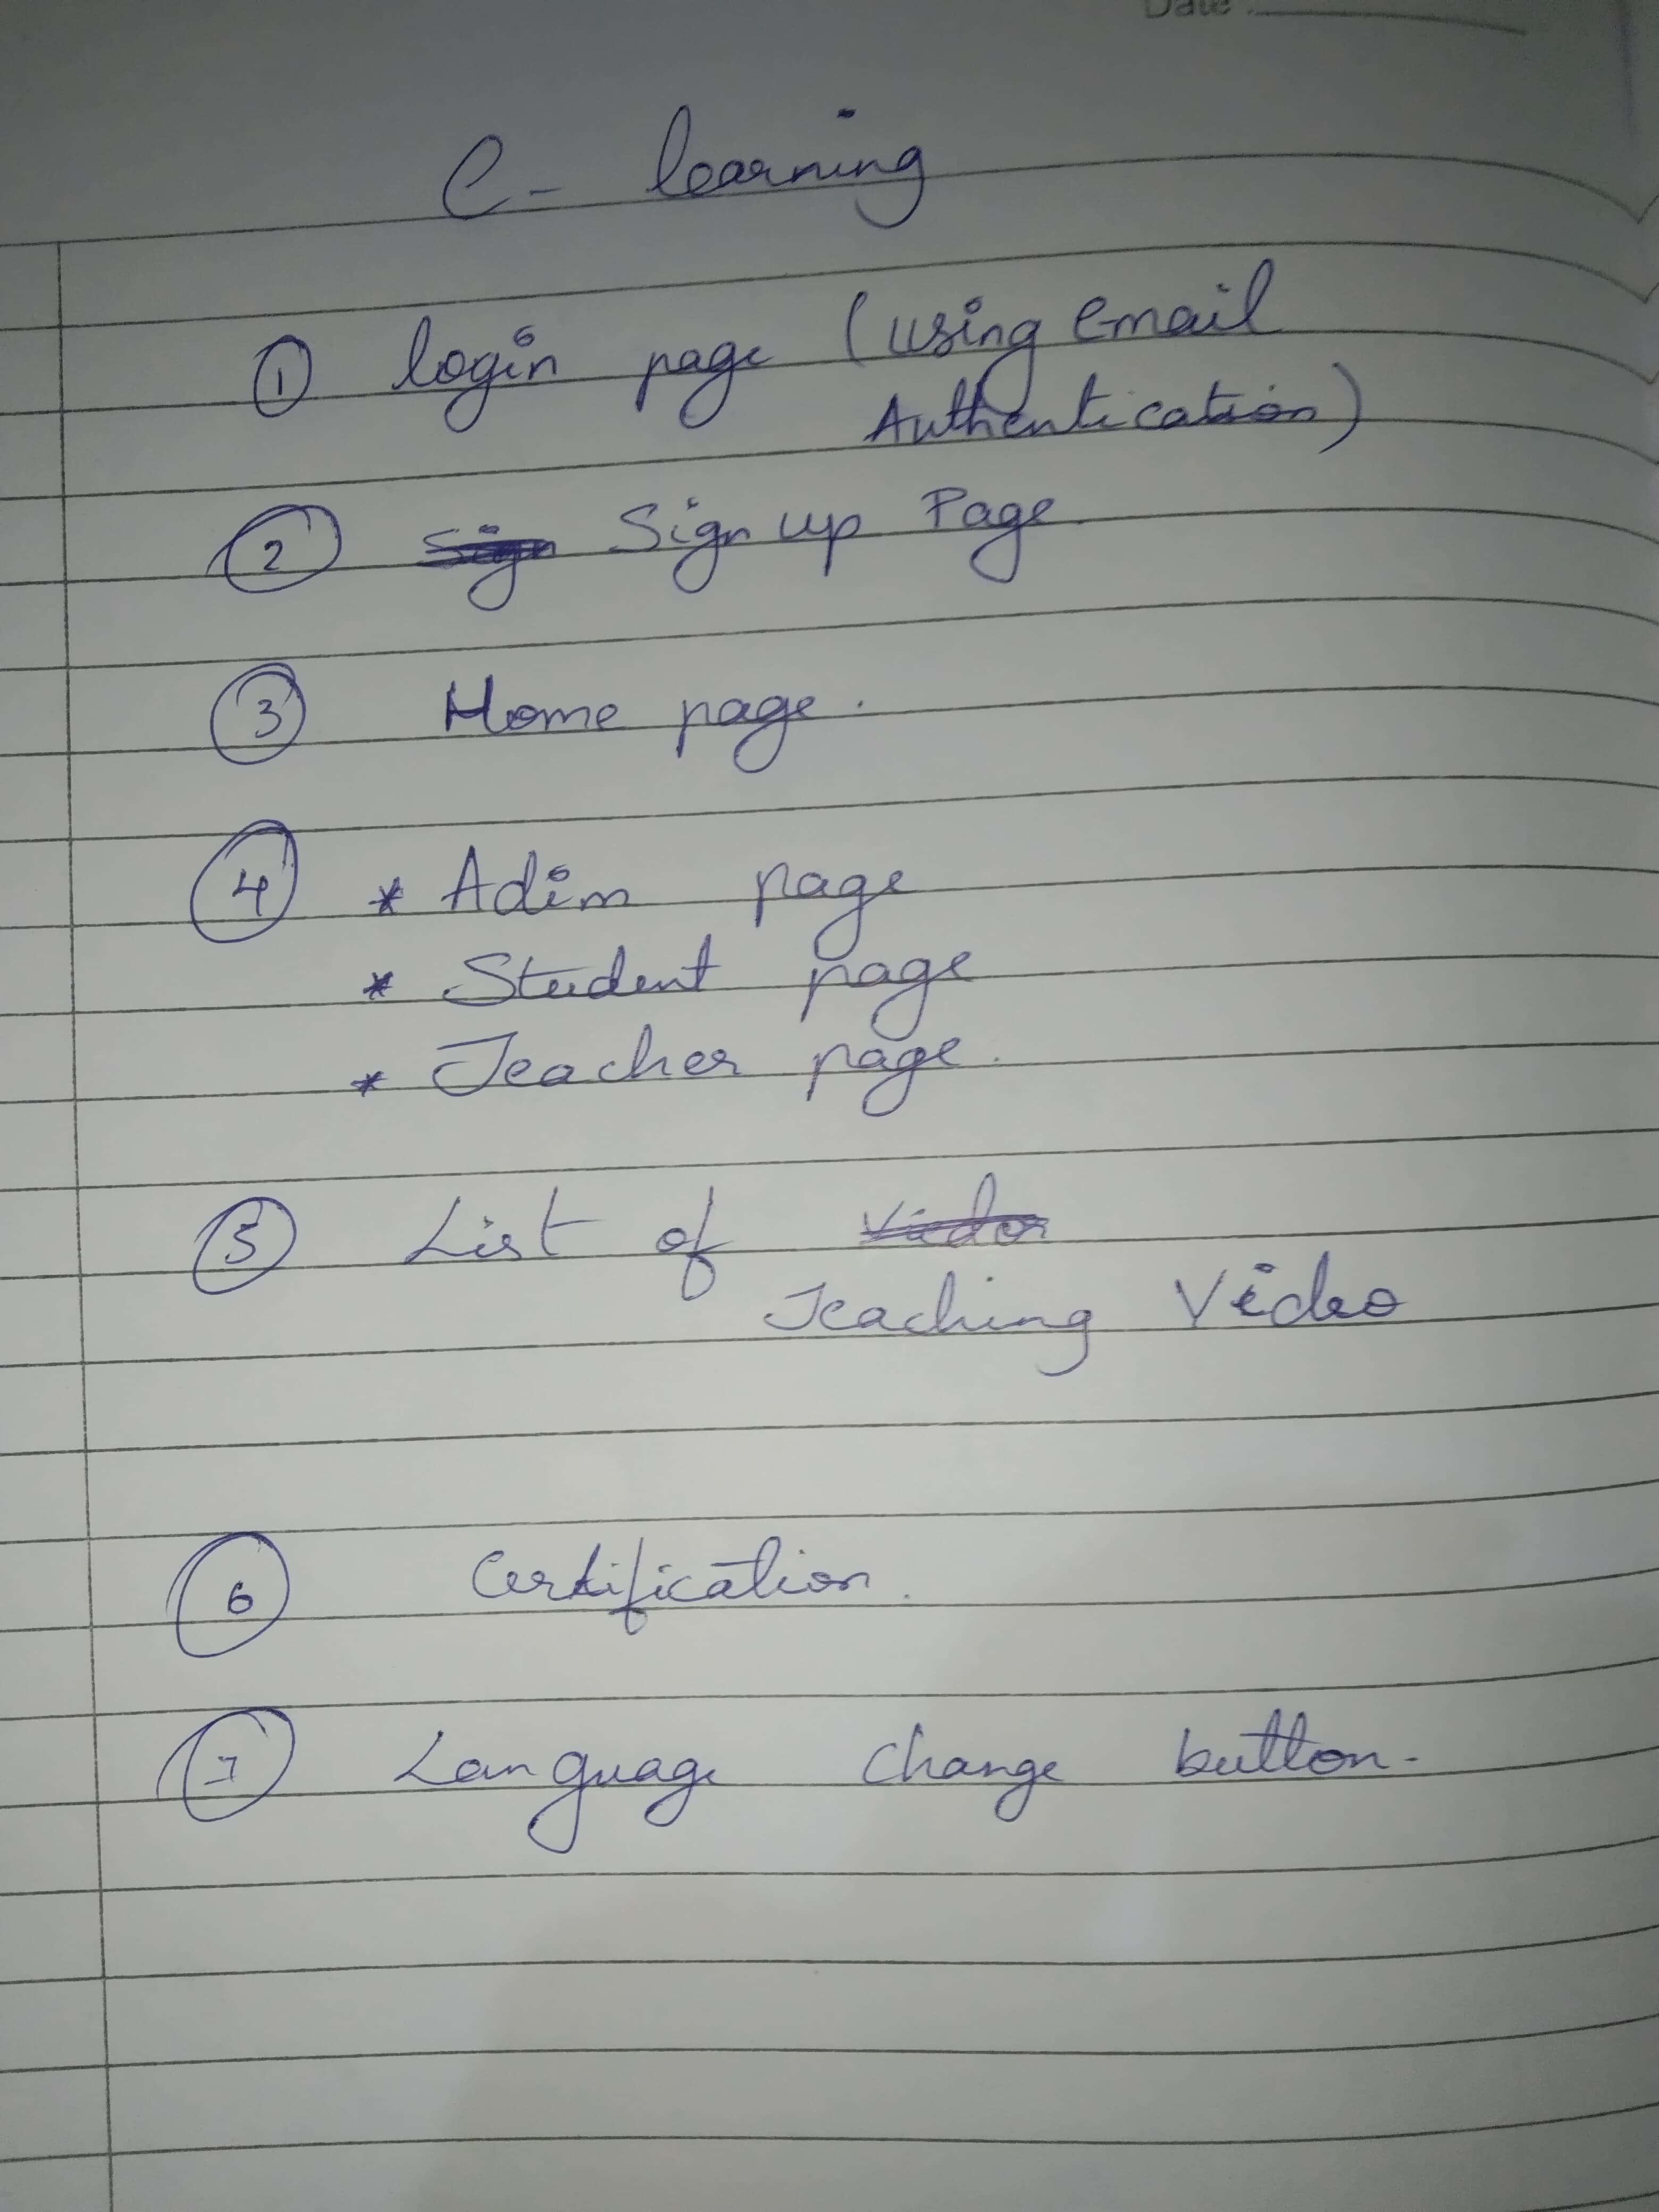 Date
e - learning
① login page (using email
Authentication)
② Sign up Page
③ Home page.
④ * Adim page
* Student page
* Teacher page.
⑤ List of
Teaching Video
⑥ Certification.
⑦ Language change button.